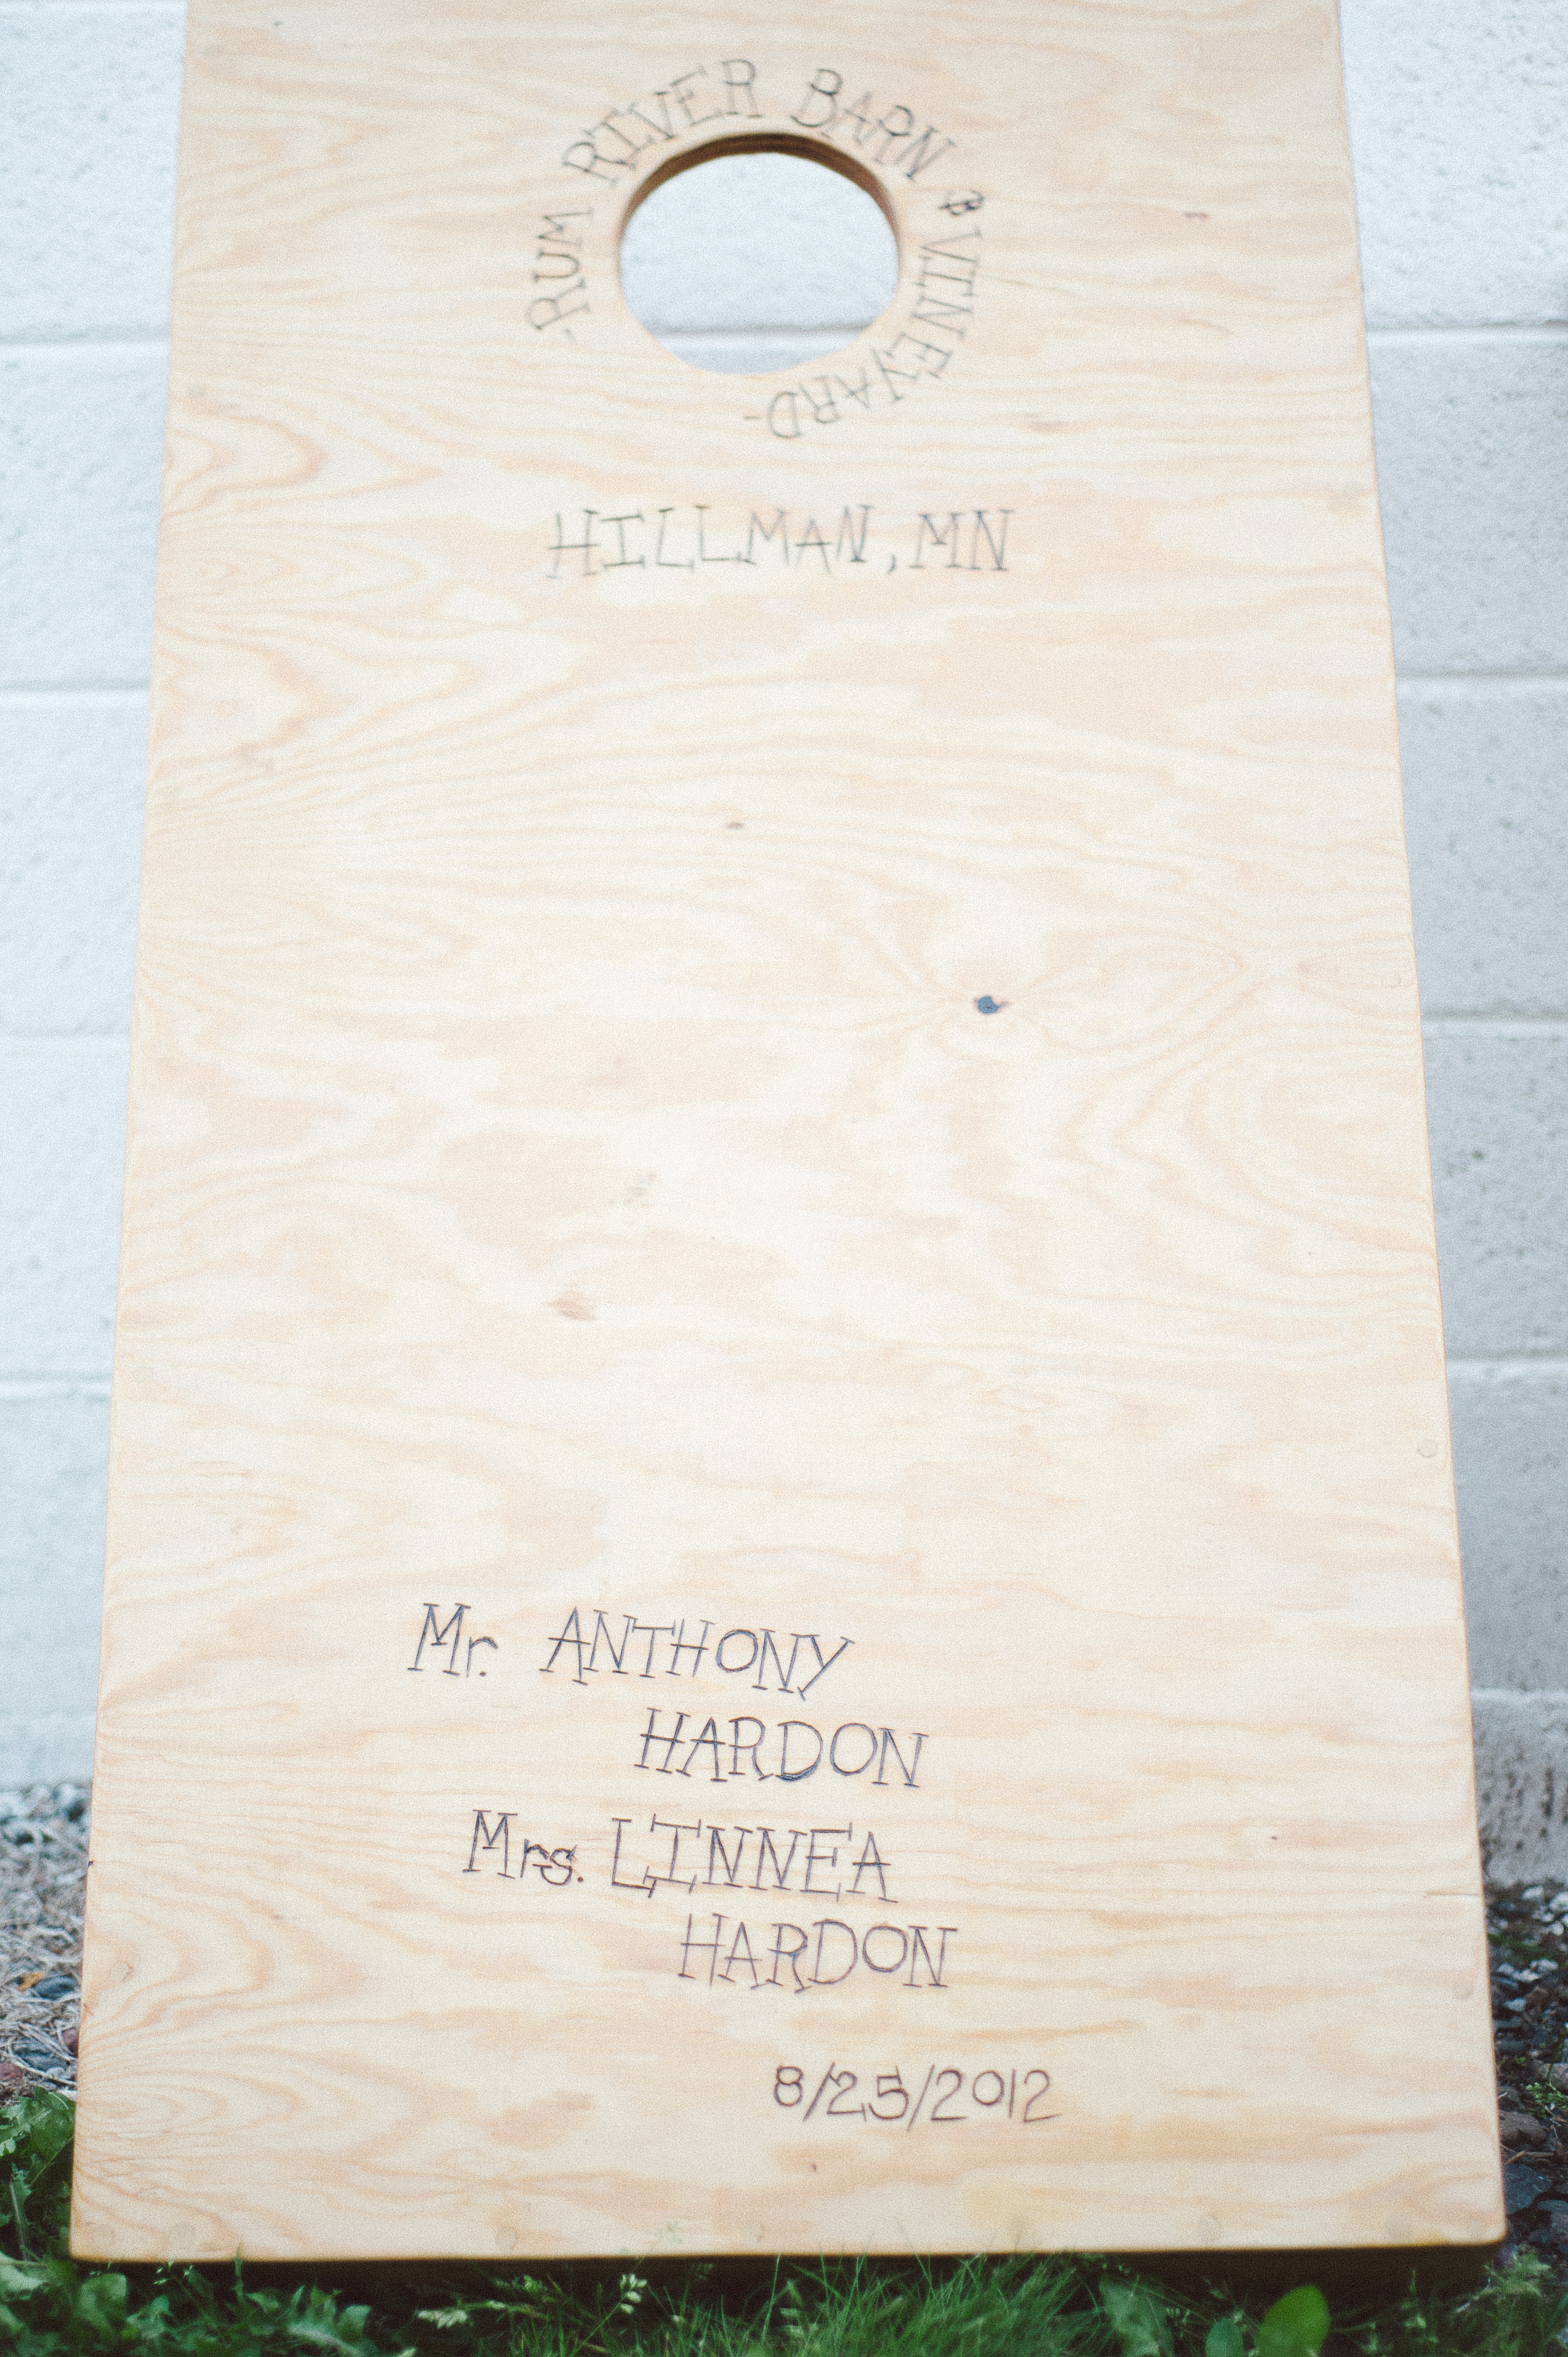 -RUM RIVER BARN & VINEYARD-
HILLMAN, MN
Mr. ANTHONY
HARDON
Mrs. LINNEA
HARDON
8/25/2012